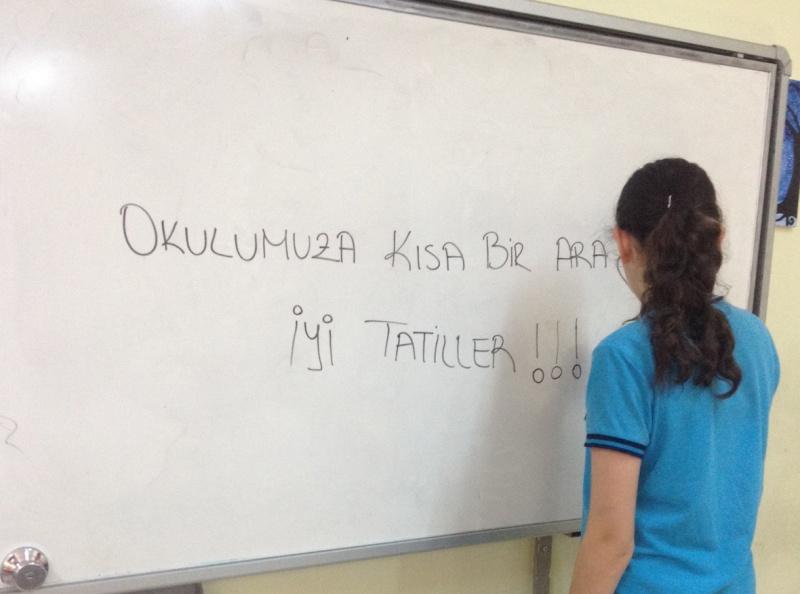 OKULUMUZA KISA BİR ARA
İYİ TATİLLER !!!